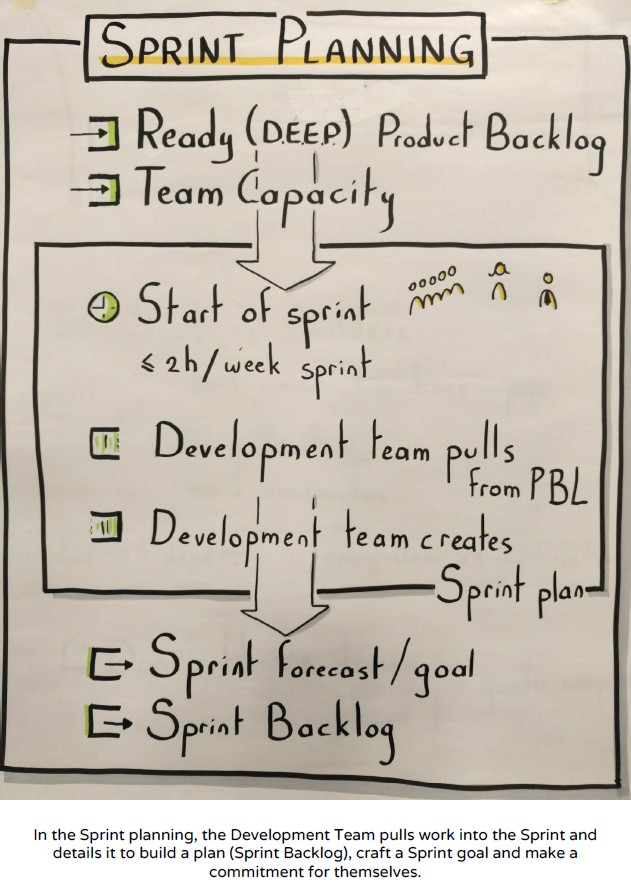 SPRINT PLANNING
Ready (D.E.E.P) Product Backlog
Team Capacity
Start of sprint
≤ 2h/week sprint
Development team pulls
from PBL
Development team creates
Sprint plan
Sprint forecast/goal
Sprint Backlog
In the Sprint planning, the Development Team pulls work into the Sprint and
details it to build a plan (Sprint Backlog), craft a Sprint goal and make a
commitment for themselves.